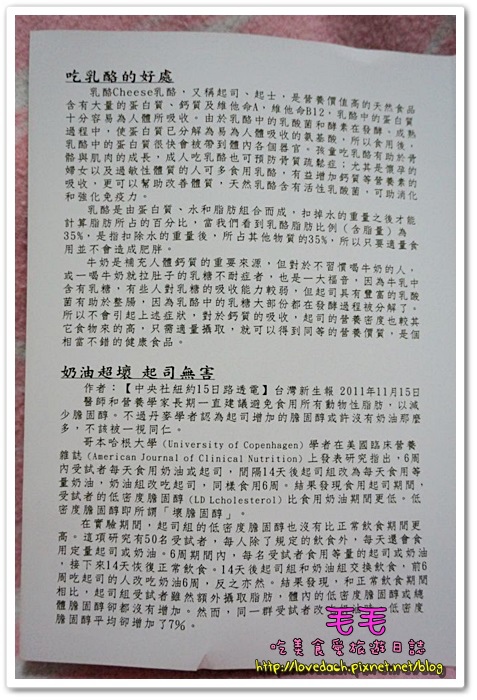 吃乳酪的好處
乳酪Cheese乳酪，又稱起司、起士，是營養價值高的天然食品
含有大量的蛋白質、鈣質及維他命A，維他命B12，乳酪中的蛋白質
十分容易為人體所吸收。由於乳酪中的乳酸菌和酵素在發酵、成熟
過程中，使蛋白質已分解為易為人體吸收的氨基酸，所以食用後，
乳酪中的蛋白質很快會被帶到體內各個器官。孩童吃乳酪有助於骨
骼與肌肉的成長，成人吃乳酪也可預防骨質疏鬆症；尤其是懷孕的
婦女以及過敏性體質的人可多食用乳酪，有益增加鈣質等營養素的
吸收，更可以幫助改善體質，天然乳酪含有活性乳酸菌，可助消化
和強化免疫力。
乳酪是由蛋白質、水和脂肪組合而成，扣掉水的重量之後才能
計算脂肪所占的百分比，當我們看到乳酪脂肪比例（含脂量）為
35%，是指扣除水的重量後，所占其他物質的35%，所以只要適量食
用並不會造成肥胖。
牛奶是補充人體鈣質的重要來源，但對於不習慣喝牛奶的人，
或一喝牛奶就拉肚子的乳糖不耐症者，也是一大福音，因為牛乳中
含有乳糖，有些人對乳糖的吸收能力較弱，但起司具有豐富的乳酸
菌有助於整腸，因為乳酪中的乳糖大部份都在發酵過程被分解了，
所以不會引起上述症狀，對於鈣質的吸收，起司的營養密度也較其
它食物來的高，只需適量攝取，就可以得到同等的營養價質，是個
相當不錯的健康食品。
奶油超壞 起司無害
作者：【中央社紐約15日路透電】台灣新生報 2011年11月15日
醫師和營養學家長期一直建議避免食用所有動物性脂肪，以減
少膽固醇。不過丹麥學者認為起司增加的膽固醇或許沒有奶油那麼
多，不該被一視同仁。
哥本哈根大學(University of Copenhagen)學者在美國臨床營養
雜誌(American Journal of Clinical Nutrition)上發表研究指出，6周
內受試者每天食用奶油或起司，間隔14天後起司組改為每天食用等
量奶油，奶油組改吃起司，同樣食用6周。結果發現食用起司期間，
受試者的低密度膽固醇(LD Lcholesterol)比食用奶油期間更低。低
密度膽固醇即所謂「壞膽固醇」。
在實驗期間，起司組的低密度膽固醇也沒有比正常飲食期間更
高。這項研究有50名受試者，每人除了規定的飲食外，每天還會食
用定量起司或奶油。6周期間內，每名受試者食用等量的起司或奶油
，接下來14天恢復正常飲食。14天後起司組和奶油組交換飲食，前6
周吃起司的人改吃奶油6周，反之亦然。結果發現，和正常飲食期間
相比，起司組受試者雖然額外攝取脂肪，體內的低密度膽固醇或總
體膽固醇卻都沒有增加。然而，同一群受試者改 低密度
膽固醇平均卻增加了7%。
毛毛
吃美食愛旅遊日誌
http://lovedach.pixnet.net/blog